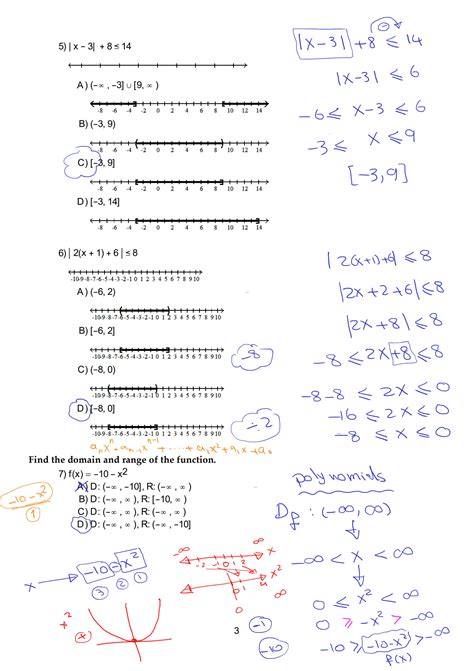 5) | x − 3| + 8 ≤ 14
|x-3| +8 ≤ 14
|x-3| ≤ 6
-6 ≤ x-3 ≤ 6
-3 ≤ x ≤ 9
[-3,9]
A) (−∞, −3] ∪ [9, ∞)
-8 -6 -4 -2 0 2 4 6 8 10 12 14
B) (−3, 9)
-8 -6 -4 -2 0 2 4 6 8 10 12 14
C) [−3, 9]
-8 -6 -4 -2 0 2 4 6 8 10 12 14
D) [−3, 14]
-8 -6 -4 -2 0 2 4 6 8 10 12 14
6) | 2(x + 1) + 6 | ≤ 8
-10-9-8-7-6-5-4-3-2-1 0 1 2 3 4 5 6 7 8 9 10
A) (−6, 2)
-10-9-8-7-6-5-4-3-2-1 0 1 2 3 4 5 6 7 8 9 10
B) [−6, 2]
-10-9-8-7-6-5-4-3-2-1 0 1 2 3 4 5 6 7 8 9 10
C) (−8, 0)
-10-9-8-7-6-5-4-3-2-1 0 1 2 3 4 5 6 7 8 9 10
D) [−8, 0]
-10-9-8-7-6-5-4-3-2-1 0 1 2 3 4 5 6 7 8 9 10
| 2(x+1)+6| ≤8
|2x+2+6|≤8
|2x+8| ≤8
-8 ≤ 2x+8 ≤8
-8-8 ≤ 2x ≤ 0
-16 ≤ 2x ≤ 0
-8 ≤ x ≤ 0
-8
÷2
Find the domain and range of the function.
7) f(x) = −10 − x²
A) D: (−∞, −10], R: (−∞, ∞)
B) D: (−∞, ∞), R: [−10, ∞)
C) D: (−∞, ∞), R: (−∞, ∞)
D) D: (−∞, ∞), R: (−∞, −10]
-10-x²
1
polynomials
D_f : (-∞,∞)
-∞ < x < ∞
0 ≤ x² < ∞
0 ≥ -x² > -∞
-10 ≥ -10-x² > -∞
f(x)
x
-10 - x²
3 2 1
-∞ ∞
x
-2 -1 0 1 2
x²
0 1 4
0 ∞
x²
-1
-10
3